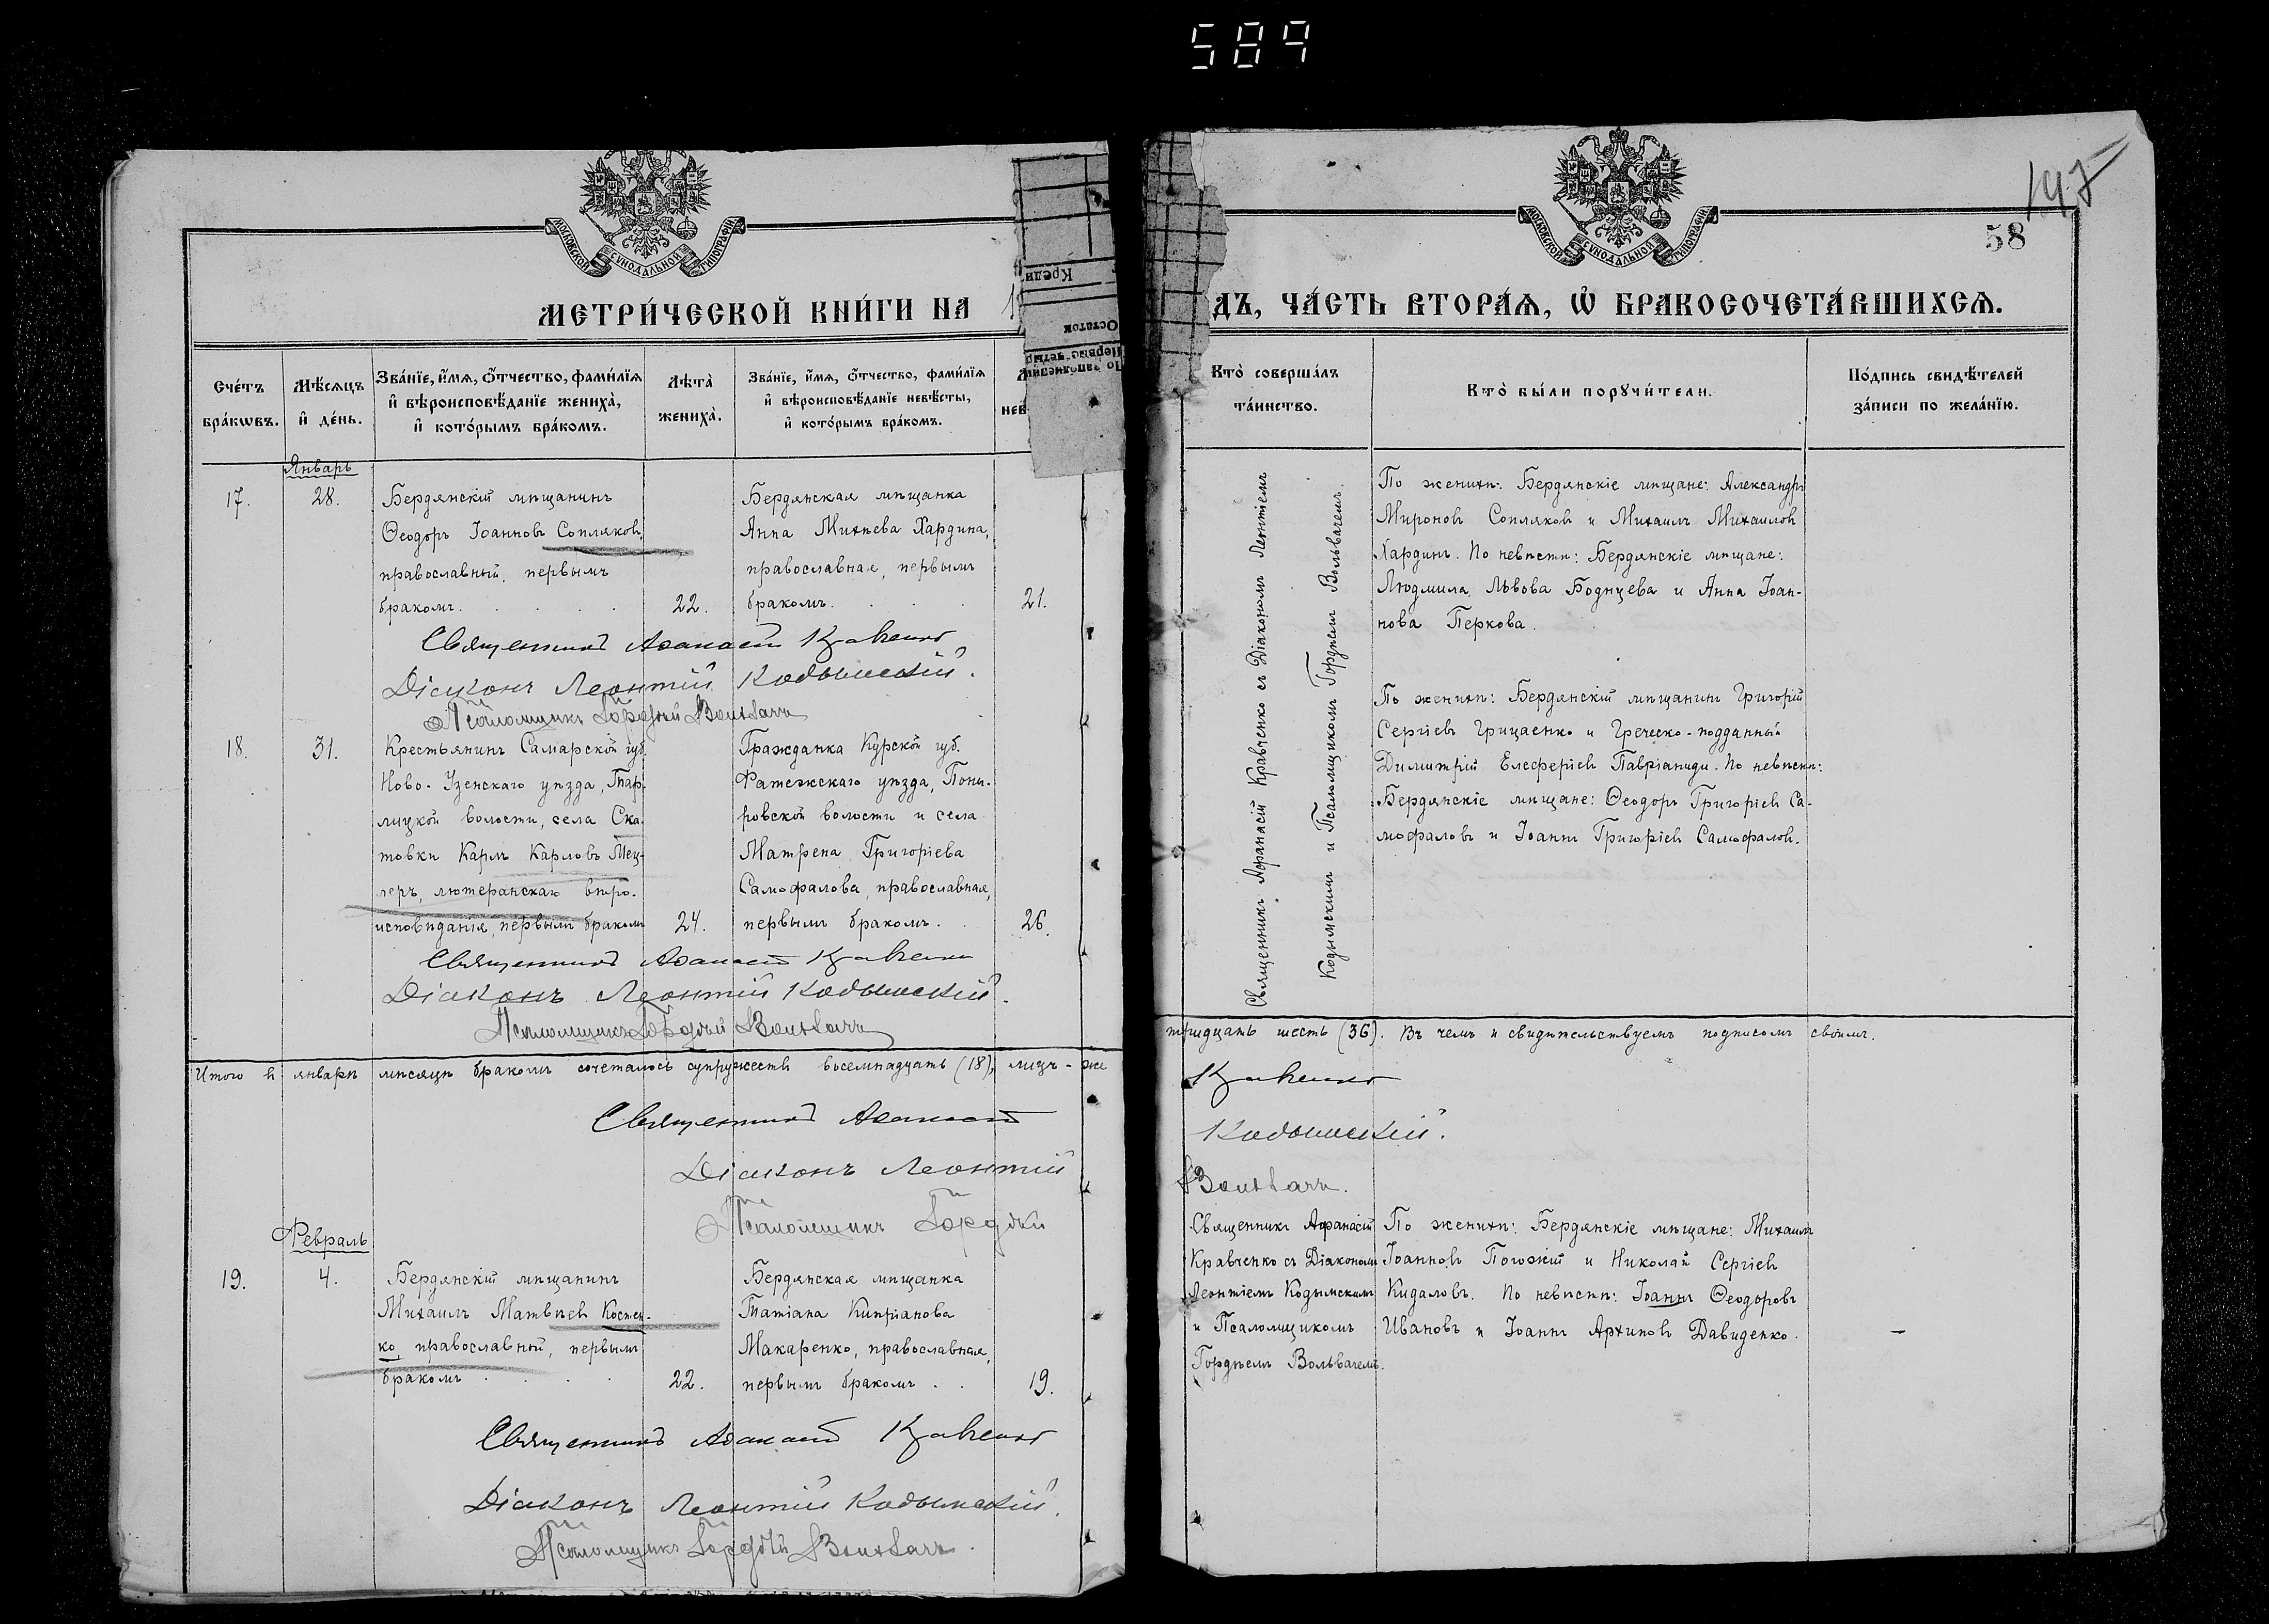 589
147
58
МОСКОВСКОЙ СѴНОДАЛЬНОЙ ТИПОГРАФІИ
МОСКОВСКОЙ СѴНОДАЛЬНОЙ ТИПОГРАФІИ
МЕТРИ́ЧЕСКОЙ КНИ́ГИ НА
ДЪ, ЧА́СТЬ ВТОРА́Ѧ, Ѽ БРАКОСОЧЕТА́ВШИХСѦ.
Кредит
Остаток
Счéтъ бра́кѡвъ.
Мѣ́сѧцъ и҆ де́нь.
Зва́нїе, и҆́мѧ, ѻ҆́тчество, фами́лїѧ
и҆ вѣроисповѣ́данїе жениха̀,
и҆ кото́рымъ бра́комъ.
Лѣта̀ жениха̀.
Зва́нїе, и҆́мѧ, ѻ҆́тчество, фами́лїѧ
и҆ вѣроисповѣ́данїе невѣ́сты,
и҆ кото́рымъ бра́комъ.
нев
Кто̀ соверша́лъ та́инство.
Кто̀ бы́ли порꙋчи́тели.
По́дпись свидѣ́телей
за́писи по жела́нїю.
Январь
17.
28.
Бердянскій мѣщанинъ
Ѳеодоръ Іоанновъ Сопляковъ,
православный, первымъ
бракомъ.
22.
Бердянская мѣщанка
Анна Михѣева Хардина,
православная, первымъ
бракомъ.
21.
Священникъ Аѳанасій Кравченко съ Діакономъ Леонтіемъ
Кодымскимъ и Псаломщикомъ Гордѣемъ Вольвачемъ.
По женихѣ: Бердянскіе мѣщане: Александръ
Мироновъ Сопляковъ и Михаилъ Михаиловъ
Хардинъ. По невѣстѣ: Бердянскіе мѣщане:
Людмила Львова Боднцева и Анна Іоан-
нова Перкова.
Священникъ Аѳанасій Кравченко
Діаконъ Леонтій Кодымскій.
Псаломщикъ Гордѣй Вольвачъ
18.
31.
Крестьянинъ Самарской губ.
Ново-Узенскаго уѣзда, Тар-
лицкой волости, села Ска-
товки Карлъ Карловъ Мец-
леръ, лютеранскаго вѣро-
исповѣданія, первымъ бракомъ
24.
Гражданка Курской губ.
Фатежскаго уѣзда, Поны-
ровской волости и села
Матрена Григоріева
Самофалова, православная,
первымъ бракомъ.
26.
По женихѣ: Бердянскій мѣщанинъ Григорій
Сергіевъ Грицаенко и Греческо-подданный
Димитрій Елеѳеріевъ Павріаниди. По невѣстѣ:
Бердянскіе мѣщане: Ѳеодоръ Григоріевъ Са-
мофаловъ и Іоаннъ Григоріевъ Самофаловъ.
Священникъ Аѳанасій Кравченко
Діаконъ Леонтій Кодымскій.
Псаломщикъ Гордѣй Вольвачъ
Итого въ январѣ мѣсяцѣ бракомъ сочеталось супружествъ восемнадцать (18), лицъ-же
тридцать шесть (36). Въ чемъ и свидѣтельствуемъ подписомъ своимъ.
Священникъ Аѳанасій Кравченко
Діаконъ Леонтій Кодымскій.
Псаломщикъ Гордѣй Вольвачъ.
Февраль
19.
4.
Бердянскій мѣщанинъ
Михаилъ Матвѣевъ Костен-
ко, православный, первымъ
бракомъ
22.
Бердянская мѣщанка
Татіана Кипріанова
Макаренко, православная,
первымъ бракомъ.
19.
Священникъ Аѳанасій
Кравченко съ Діакономъ
Леонтіемъ Кодымскимъ
и Псаломщикомъ
Гордѣемъ Вольвачемъ.
По женихѣ: Бердянскіе мѣщане: Михаилъ
Іоанновъ Погожій и Николай Сергіевъ
Кидаловъ. По невѣстѣ: Іоаннъ Ѳеодоровъ
Ивановъ и Іоаннъ Архиповъ Давиденко.
Священникъ Аѳанасій Кравченко
Діаконъ Леонтій Кодымскій.
Псаломщикъ Гордѣй Вольвачъ.